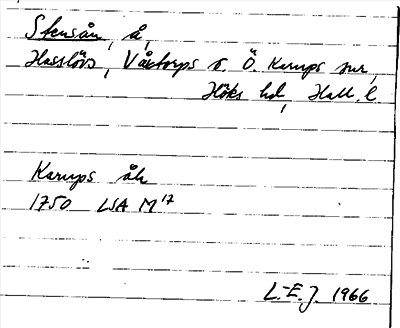 Stensån, å,
Hasslövs, Våxtorps o. Ö. Karups snr,
Höks hd, Hall. l.
Karups åk
1750 LSA M 17
L.-E. J. 1966